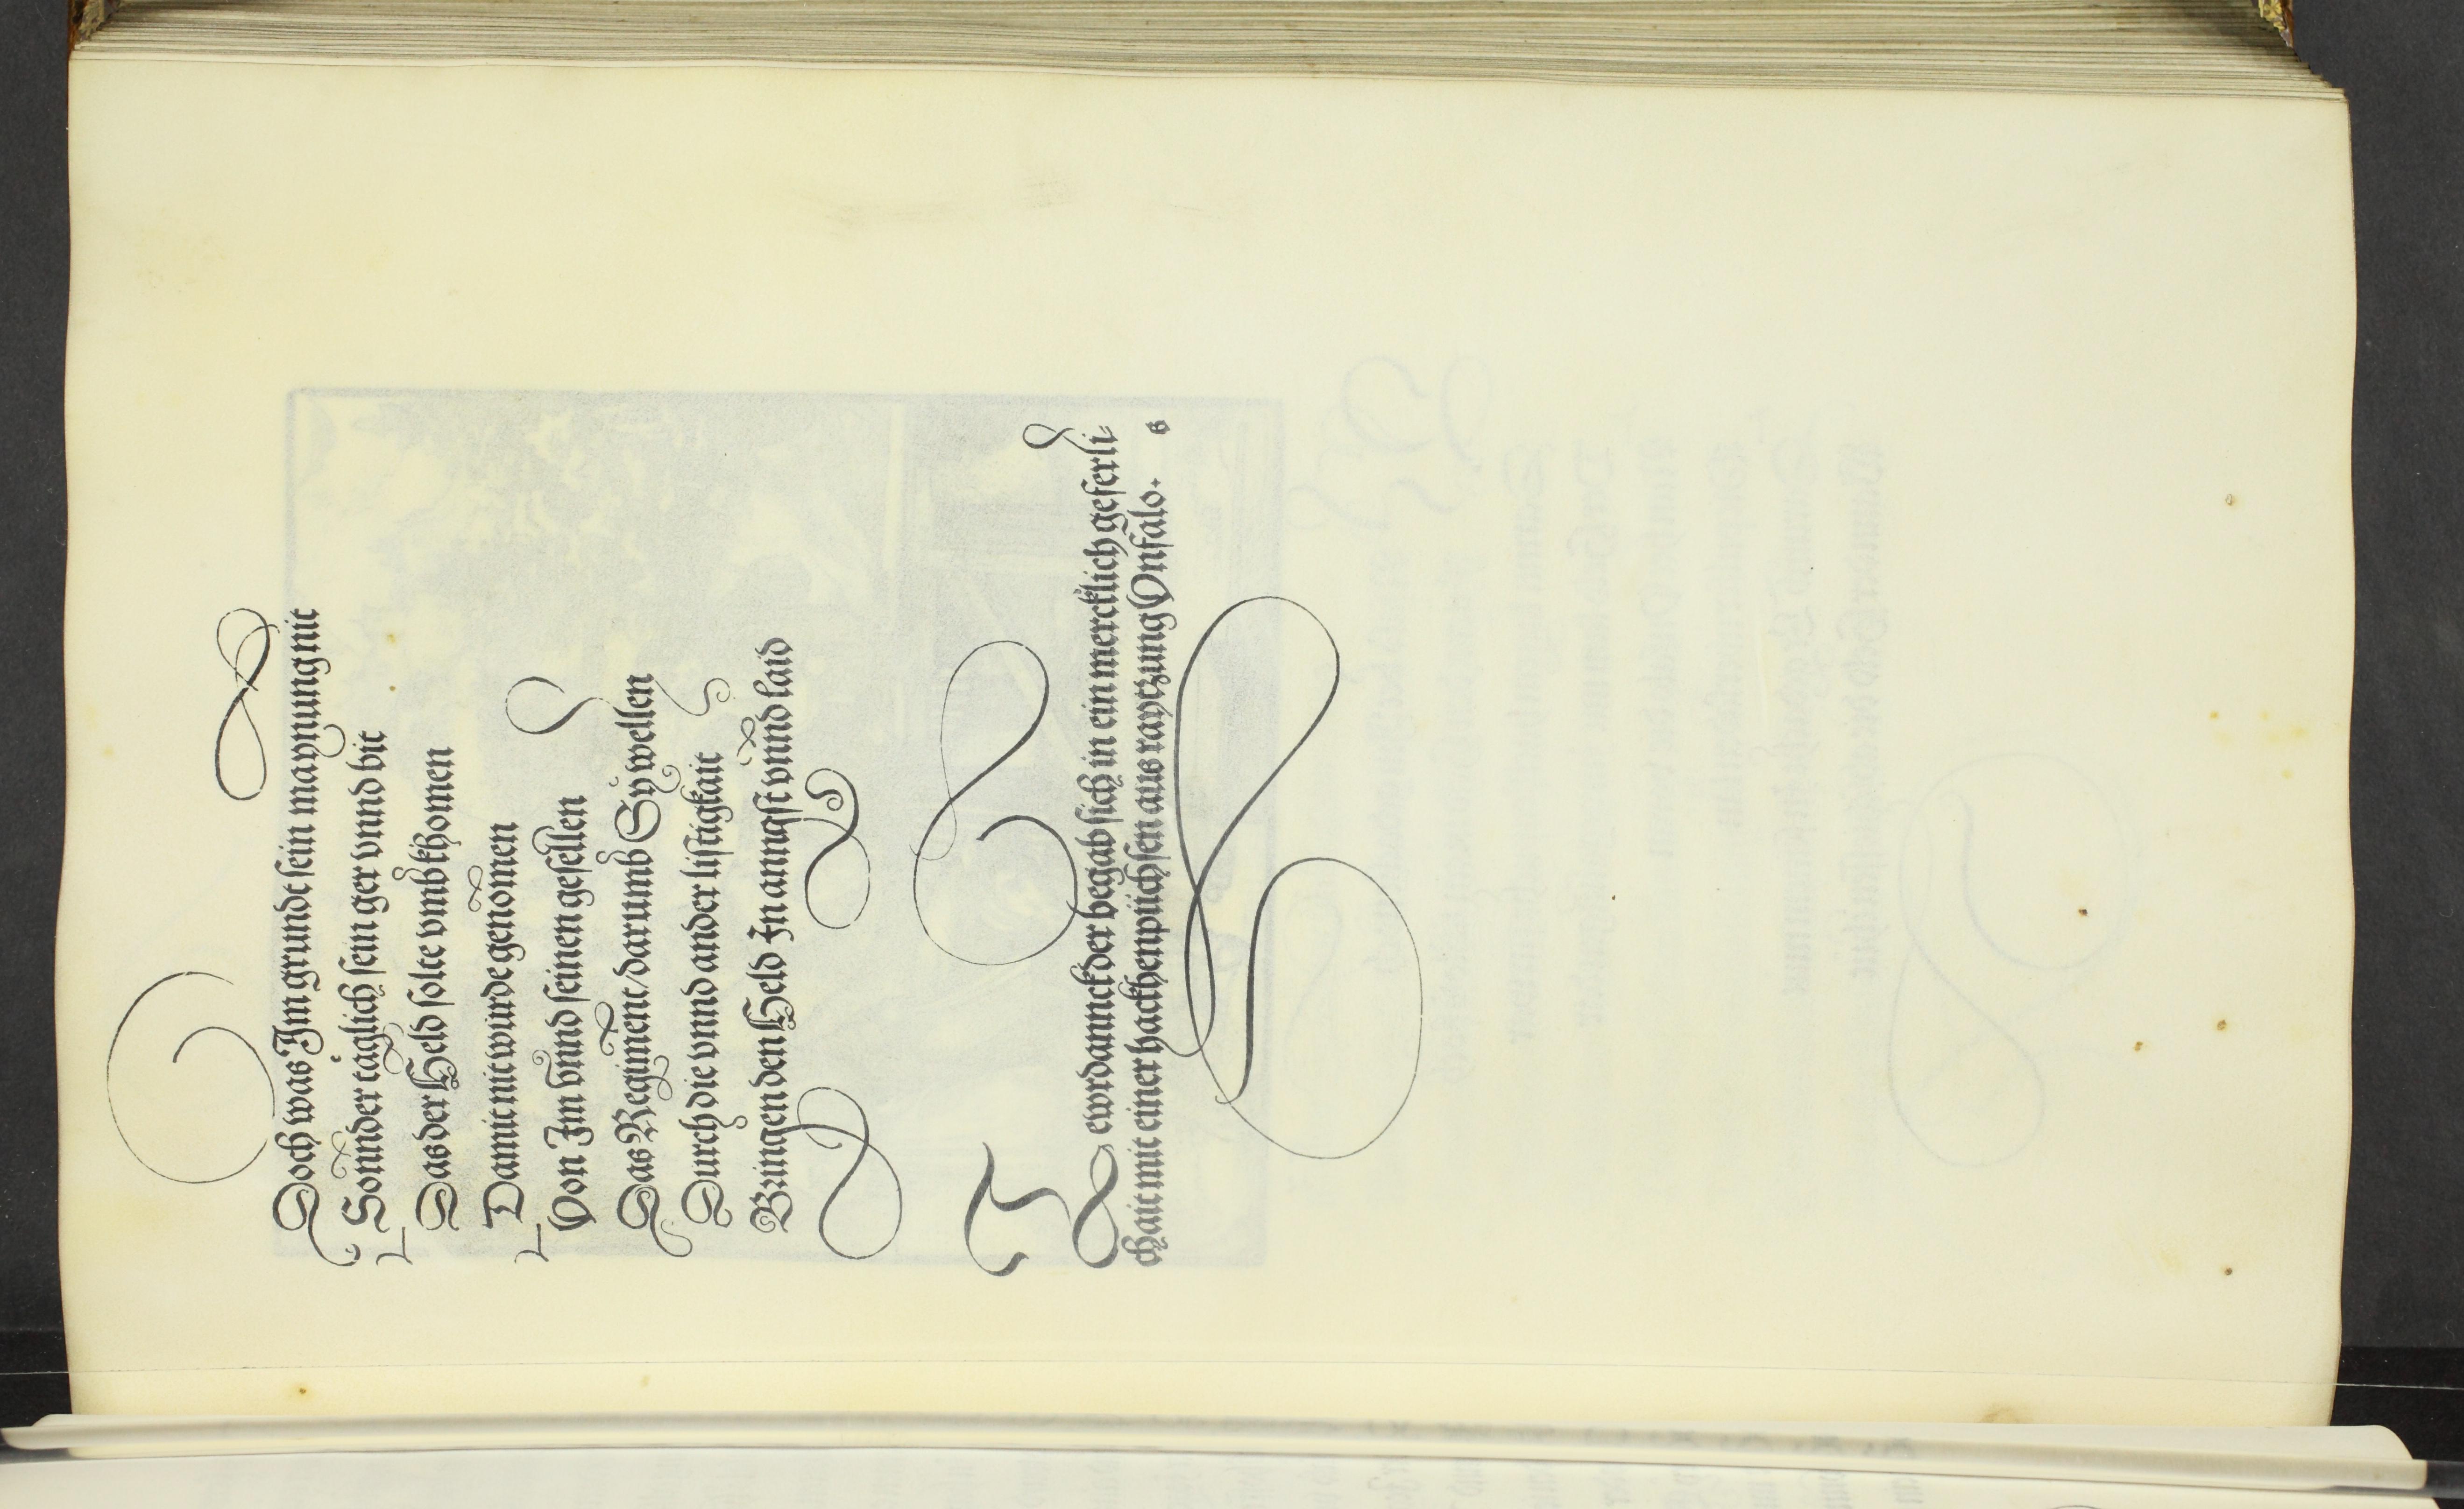 Doch was Im grundt sein maynung nit
Sonnder täglich sein ger vnnd bit
Das der Held solte vmbkhomen
Damit nit wurde genomen
Von Im vnnd seinen gesellen
Das Regiment/darumb Sy wellen
Durch die vnnd ander listigkait
Bringen den Held In anngst vnnd laid
Tewrdannck der begab sich in ein mercklich geferli-
chait mit einer hackhenpüchsen aus raytzung Vnfalo.